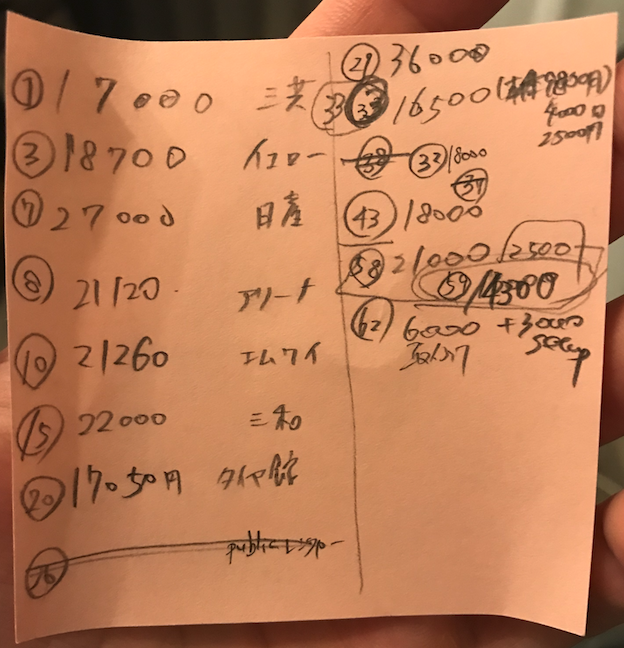 ① 17000 三共
③ 18700 イエロー
⑦ 27000 日産
⑧ 21120 アリーナ
⑩ 21260 エムワイ
⑮ 22000 三和
⑳ 17050円 タイヤ館
㉙ 36000
㉝ 16500
4000円
2500円
㊳ ㉜ 18000
㊲
㊸ 18000
58 21000 2500
59 14300
62 6000 +3000